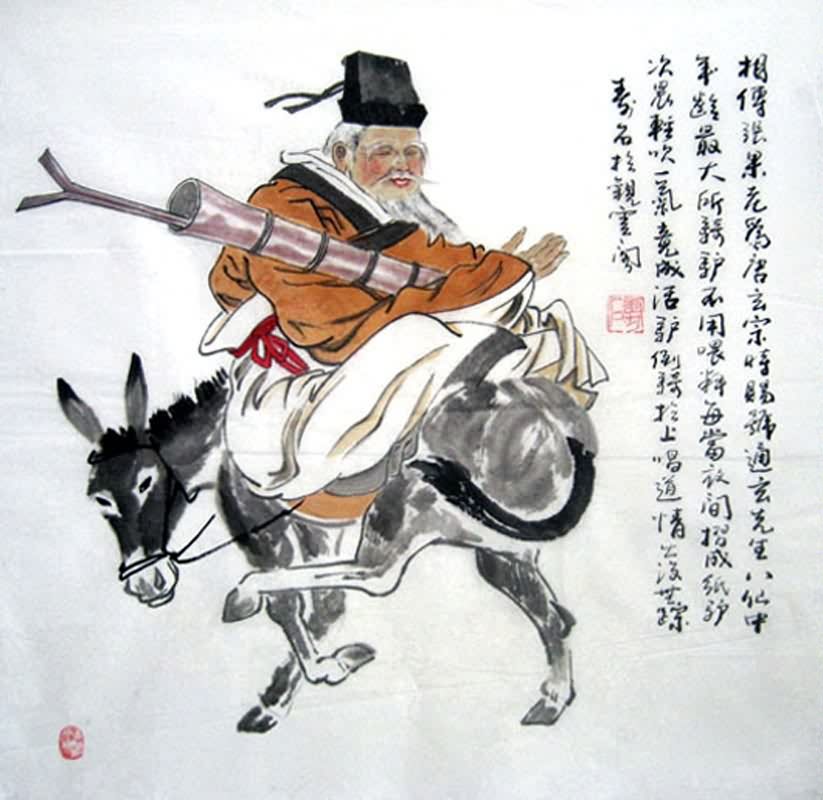 相傳張果老爲唐玄宗時賜號通玄先生八仙中
年齡最大所騎驴不用喂料每當夜间摺成紙驴
次晨輕吹一氣竟成活驴倒騎於上唱道情
壽石於觀雲閣